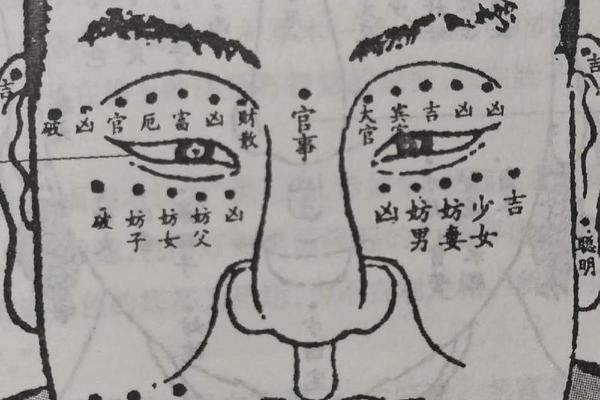 吉
破
凶
官
厄
富
凶
財散
官事
大官
吉
凶
凶
吉
破
妨子
妨女
妨父
凶
凶
妨男
妨妻
少女
吉
聰明